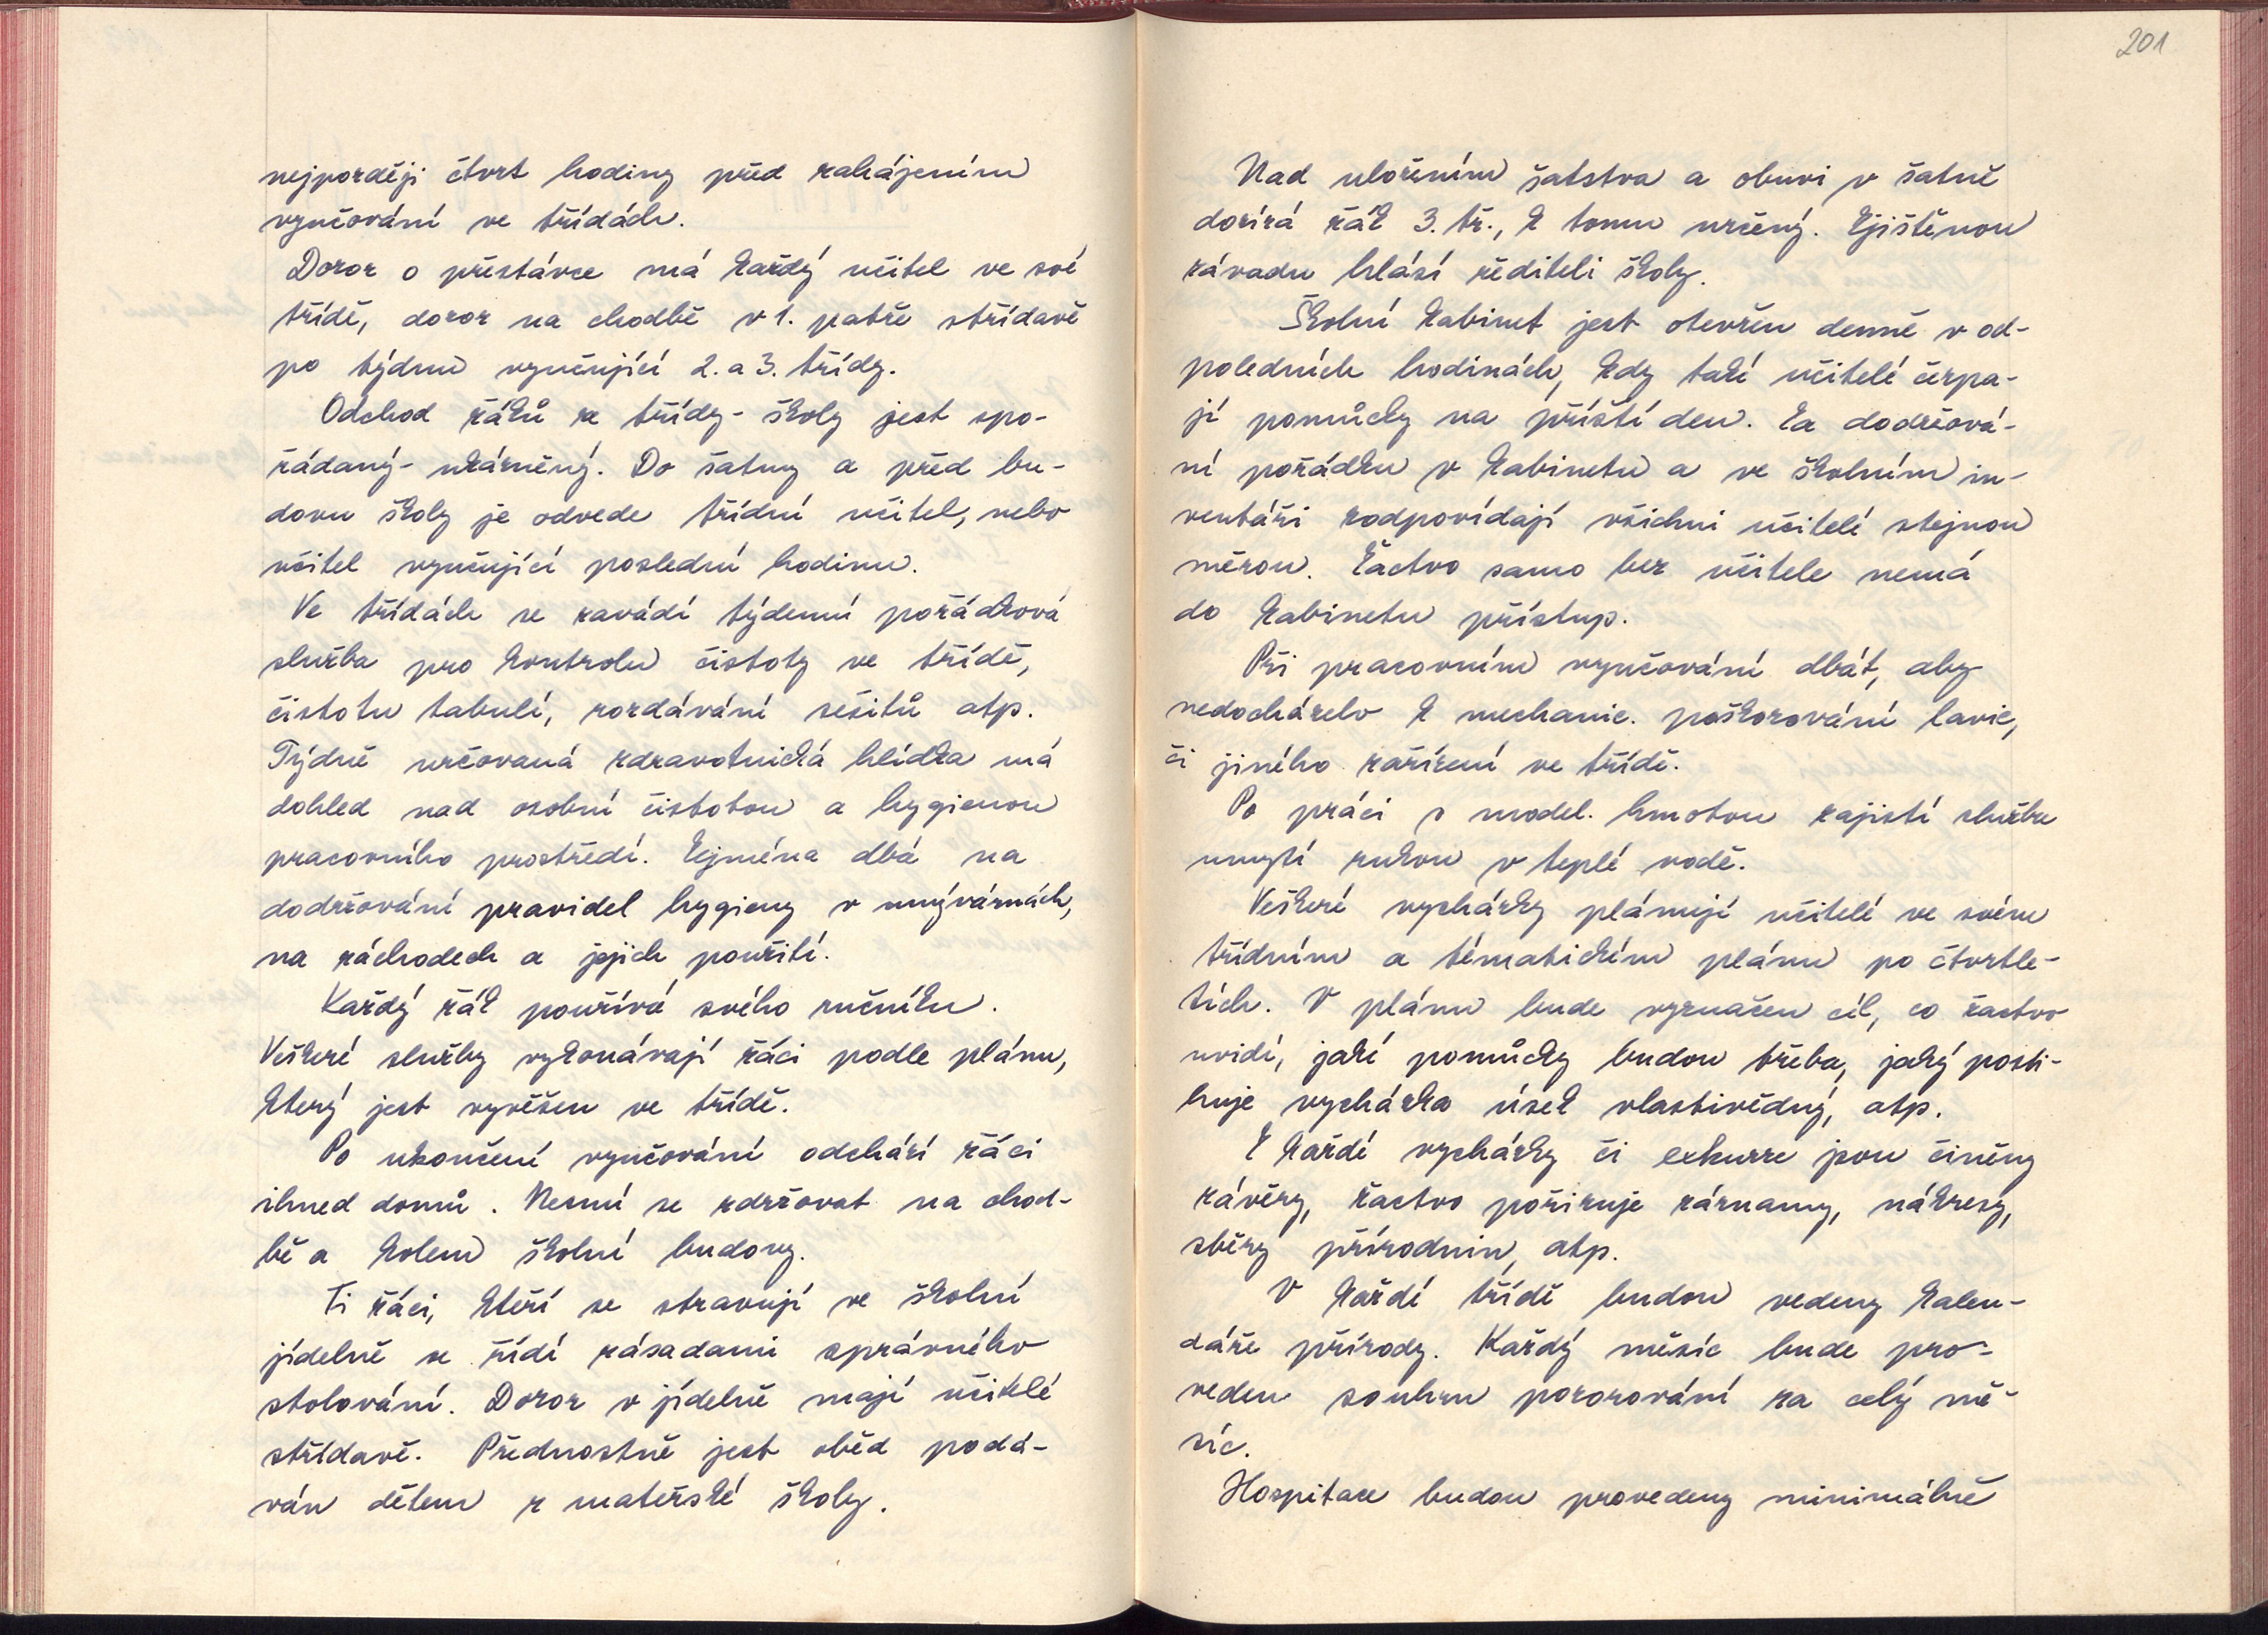 nejpozději čtvrt hodiny před zahájením
vyučování ve třídách.
Dozor o přestávce má každý učitel ve své
třídě, dozor na chodbě v 1. patře střídavě
po týdnu vyučující 2. a 3. třídy.
Odchod žáků ze třídy - školy jest spo-
řádaný - ukázněný. Do šatny a před bu-
dovu školy je odvede třídní učitel, nebo
učitel vyučující poslední hodinu.
Ve třídách se zavádí týdenní pořádková
služba pro kontrolu čistoty ve třídě,
čistotu tabulí, rozdávání sešitů atp.
Týdně určovaná zdravotnická hlídka má
dohled nad osobní čistotou a hygienou
pracovního prostředí. Zejména dbá na
dodržování pravidel hygieny v umývárnách,
na záchodech a jejich použití.
Každý žák používá svého ručníku.
Veškeré služby vykonávají žáci podle plánu,
který jest vyvěšen ve třídě.
Po ukončení vyučování odchází žáci
ihned domů. Nesmí se zdržovat na chod-
bě a kolem školní budovy.
Ti žáci, kteří se stravují ve školní
jídelně se řídí zásadami správného
stolování. Dozor v jídelně mají učitelé
střídavě. Přednostně jest oběd podá-
ván dětem z mateřské školy.
201
Nad uložením šatstva a obuvi v šatně
dozírá žák 3. tř., k tomu určený. Zjištěnou
závadu hlásí řediteli školy.
Školní kabinet jest otevřen denně v od-
poledních hodinách, kdy také učitelé čerpa-
jí pomůcky na příští den. Za dodržová-
ní pořádku v kabinetu a ve školním in-
ventáři zodpovídají všichni učitelé stejnou
měrou. Žactvo samo bez učitele nemá
do kabinetu přístup.
Při pracovním vyučování dbát, aby
nedocházelo k mechanic. poškozování lavic,
či jiného zařízení ve třídě.
Po práci s model. hmotou zajistí služba
umytí rukou v teplé vodě.
Veškeré vycházky plánují učitelé ve svém
třídním a tématickém plánu po čtvrtle-
tích. V plánu bude vyznačen cíl, co žactvo
uvidí, jaké pomůcky budou třeba, jaký posti-
huje vycházka úsek vlastivědný, atp.
Z každé vycházky či exkurze jsou činěny
závěry, žactvo pořizuje záznamy, nákresy,
sběry přírodnin, atp.
V každé třídě budou vedeny kalen-
dáře přírody. Každý měsíc bude pro-
veden souhrn pozorování za celý mě-
síc.
Hospitace budou provedeny minimálně